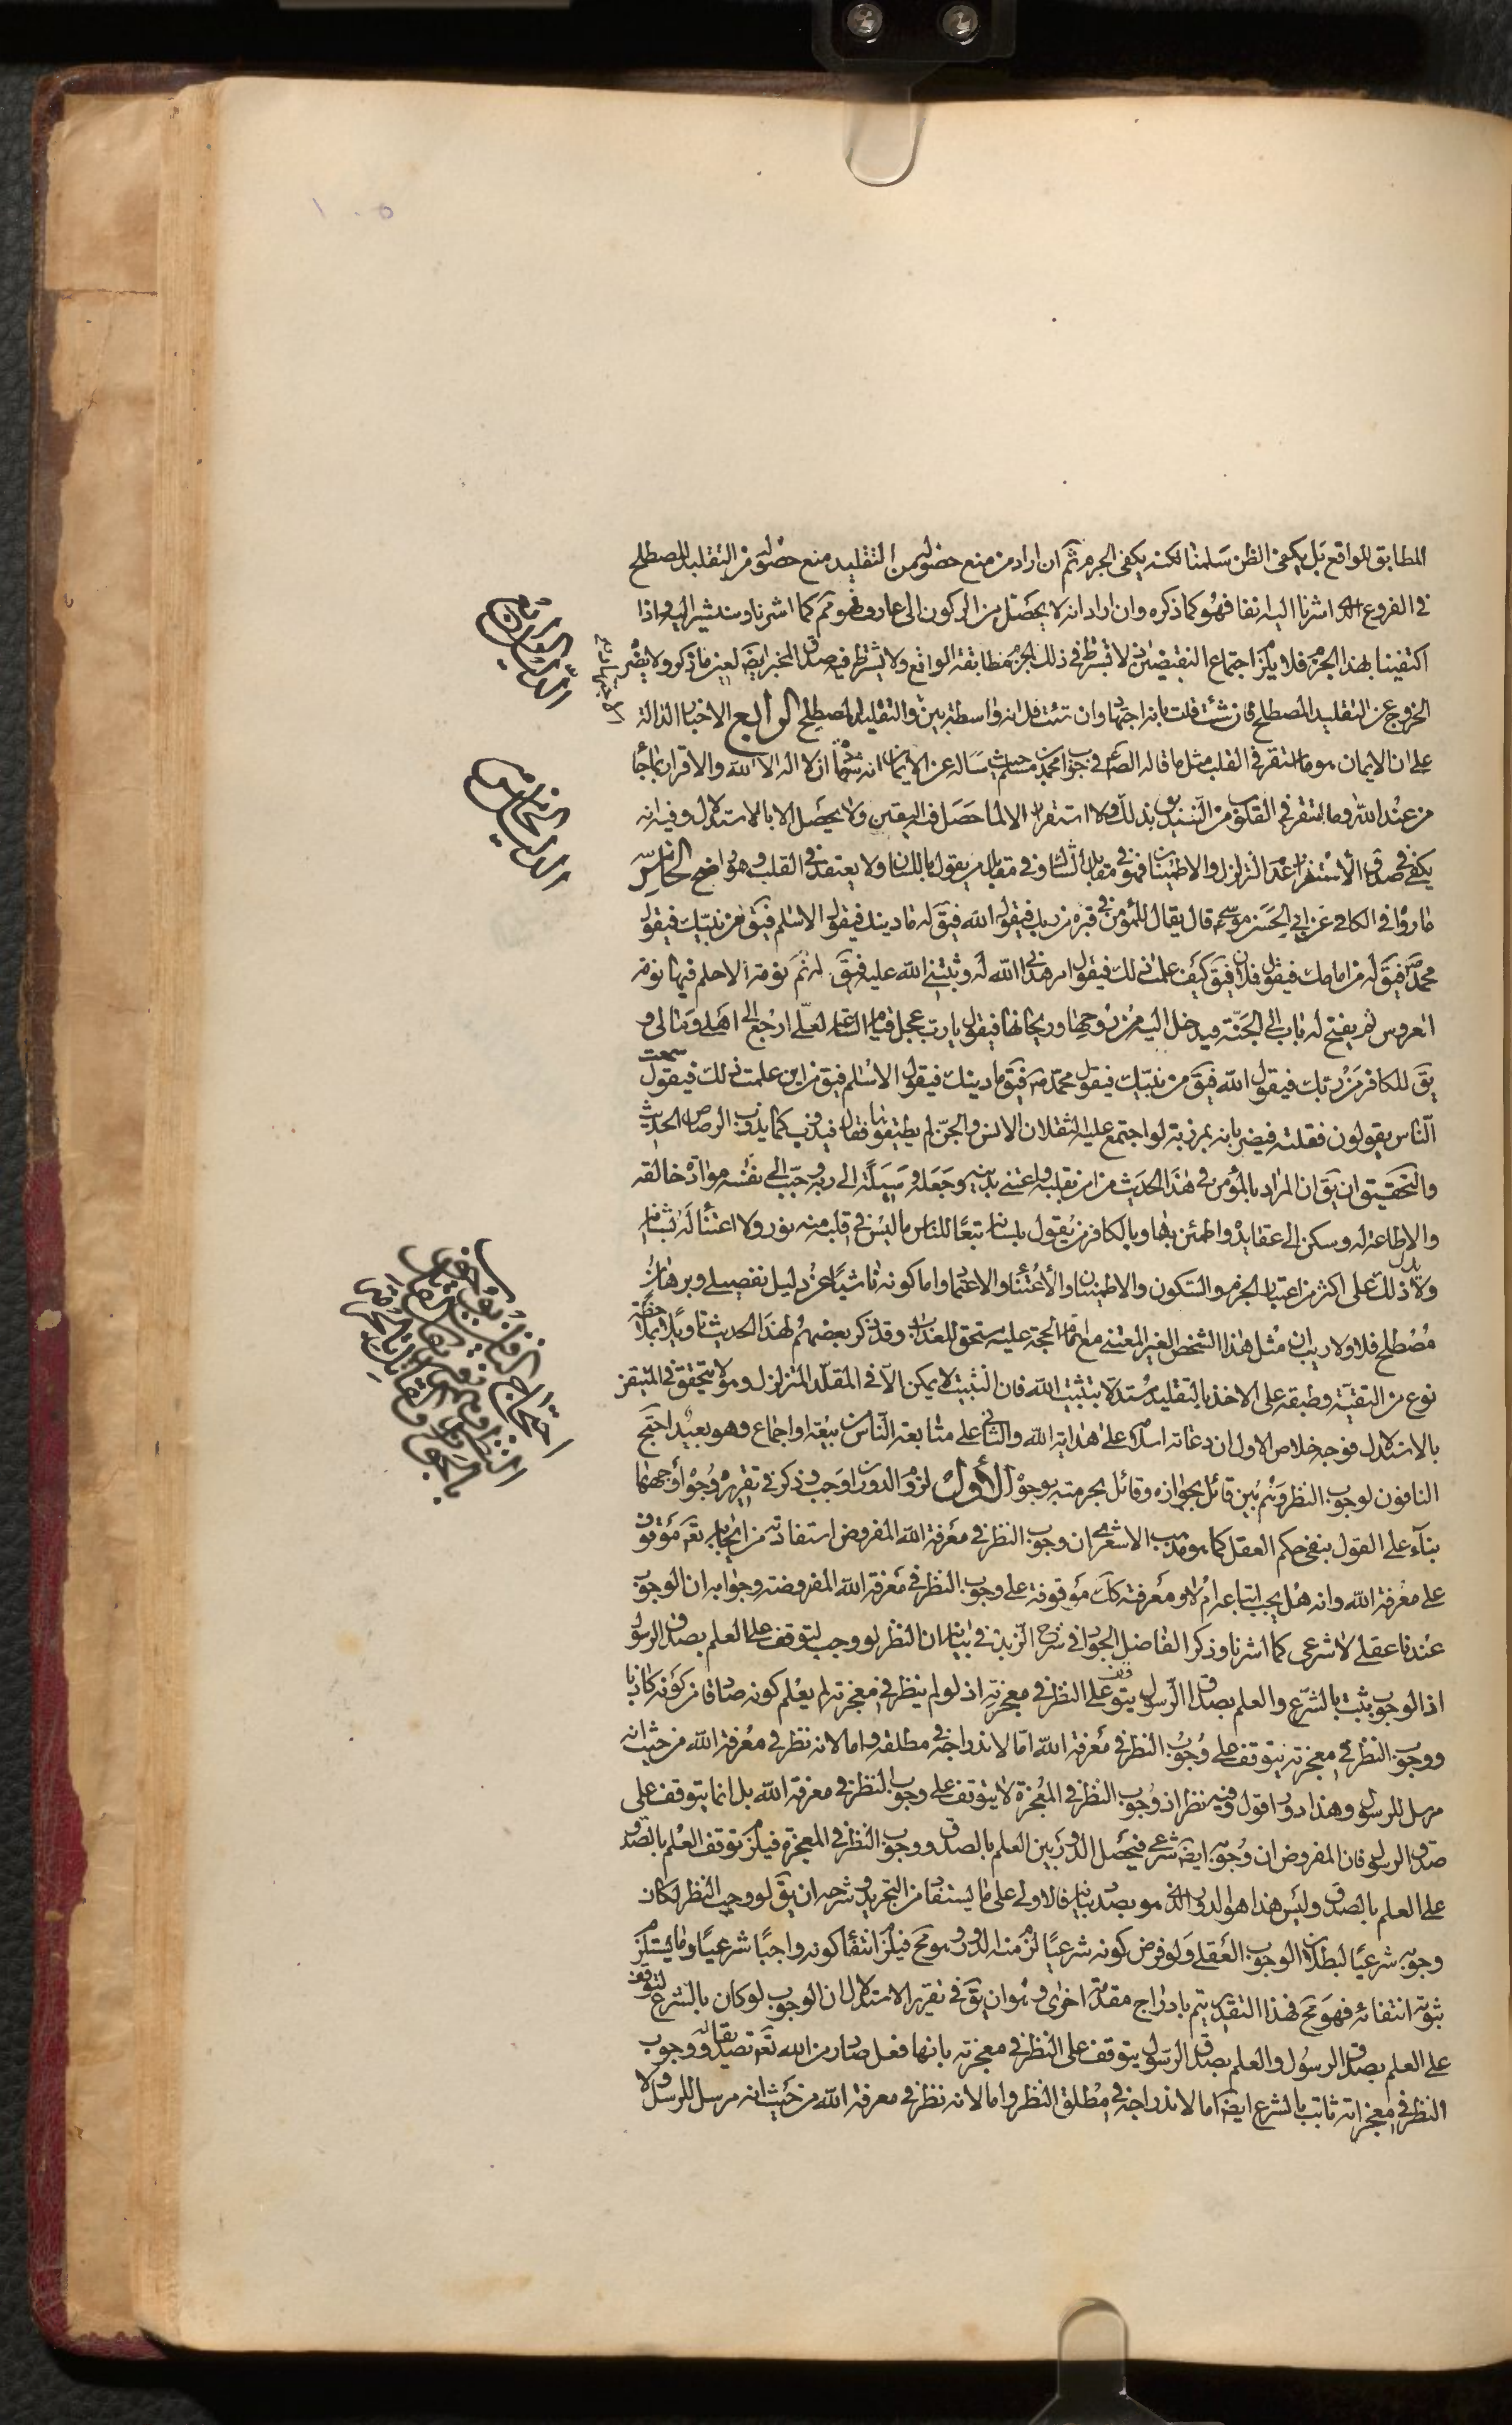 المطابق للواقع بل يكفى الظن سلمنا لكنه يكفى الجزم ثم ان اراد من منع حصوله من التقليد منع حصوله من التقليد المصطلح
فى الفروع الذى اشرنا اليه انفا فهو كما ذكره وان اراد انه لا يحصل من الركون الى عارف فهو مم كما اشرنا وسنشير اليه واذا
اكتفينا بهذا الجزم فلا يلزم اجتماع النقيضين لانا لا نشترط فى ذلك الجزم مطابقة الواقع ولا يشترط فيه صدق المخبر ايضا لعين ما ذكر ولا يضر
الخروج عن التقليد المصطلح فان شئت قلت بانه اجتهاد وان شئت قل انه واسطة بينه والتقليد المصطلح الرابع الاخبار الدالة
على ان الايمان هو ما استقر فى القلب مثل ما قاله الصادق فى جواب محمد بن مسلم حيث ساله عن الايمان انه شهادة ان لا اله الا الله والاقرار بما جاء
من عند الله وما استقر فى القلوب من التصديق بذلك ولا استقرار الا لما حصل فيه اليقين ولا يحصل الا بالاستدلال وفيه انه
يكفى فى صدق الاستقرار عدم التزلزل والاطمينان فهو فى مقابل الشاك وفى مقابل من يقول باللسان ولا يعتقد فى القلب وهو واضح الخامس
ما رواه فى الكافى عن ابى الحسن موسى ع قال يقال للمؤمن فى قبره من ربك فيقول الله فيق له ما دينك فيقول الاسلم فيق من نبيك فيقول
محمد ص فيق له من امامك فيقول فلان فيق كيف علمت ذلك فيقول امر هدانى الله له وثبتنى الله عليه فيق له نم نومة لا حلم فيها نومة
العروس ثم يفتح له باب الى الجنة فيدخل اليه من روحها وريحانها فيقول يا رب عجل قيام الساعة لعلى ارجع الى اهلى ومالى و
يق للكافر من ربك فيقول الله فيق من نبيك فيقول محمد ص فيق ما دينك فيقول الاسلم فيق من اين علمت ذلك فيقول سمعت
الناس يقولون فقلته فيضربانه بمرزبة لو اجتمع عليه الثقلان الانس والجن لم يطيقوها فقال فيذوب كما يذوب الرصاص الحديث
والتحقيق ان يق ان المراد بالمؤمن فى هذا الحديث من امن بقلبه واعتنى بدينه وجعله وسيلة الى ربه وحبب الى نفسه مواد خالقه
والاطاعة له وسكن الى عقايده واطمئن بها وبالكافر من يقول بلسانه تبعا للناس ما ليس فى قلبه منه نور ولا اعتناء له بشانه
ولا يدل ذلك على اكثر من اعتبار الجزم والسكون والاطمينان والاعتناء والاعتماد واما كونه ناشيا عن دليل تفصيلى وبرهان
مصطلح فلا ولا ريب ان مثل هذا الشخص الغير المعتنى مع تمام الحجة عليه مستحق للعذاب وقد ذكر بعضهم لهذا الحديث تاويلا بملاحظة
نوع من التقية وطبقه على الاخذ بالتقليد مستدلا بتثبيت الله فان التثبيت لا يمكن الا فى المقلد المتزلزل وهو لا يتحقق فى المتيقن
بالاستدلال فوجه خلاص الاول ان دعاته اسلا على هداية الله والثانى على متابعة الناس بيعة او اجماع وهو بعيد احتج
النافون لوجوب النظر وهم بين قائل بجوازه وقائل بحرمته بوجوه الأول لزوم الدور ان اوجب وذكر فى تقريره وجوه أوجهها
بناء على القول بنفى حكم العقل كما هو مذهب الاشعرى ان وجوب النظر فى معرفة الله المفروض استفادته من ايجابه تعه موقوف
على معرفة الله وانه هل يجب اتباعه ام لا ومعرفته كك موقوفة على وجوب النظر فى معرفة الله المفروضة وجوابه ان الوجوب
عندنا عقلى لا شرعى كما اشرنا وذكر الفاضل الجواد فى شرح الزبدة فى بيانه ان النظر لو وجب لتوقف على العلم بصدق الرسول
اذ الوجوب يثبت بالشرع والعلم بصدق الرسول يتوقف على النظر فى معجزته اذ لو لم ينظر فى معجزته لم يعلم كونه صادقا من كونه كاذبا
ووجوب النظر فى معجزته يتوقف على وجوب النظر فى معرفة الله اما لاندراجه فى مطلقه واما لانه نظر فى معرفة الله من حيث انه
مرسل للرسول وهذا دور اقول وفيه نظر اذ وجوب النظر فى المعجزة لا يتوقف على وجوب النظر فى معرفة الله بل انما يتوقف على
صدق الرسول فان المفروض ان وجوبه ايضا شرعى فيحصل الدور بين العلم بالصدق ووجوب النظر فى المعجزة فيلزم توقف العلم بالصدق
على العلم بالصدق وليس هذا هو الدور الذى هو بصدد بيانه فالاولى على ما يستفاد من التجريد وشرحه ان يق لو وجب النظر لكان
وجوبه شرعيا لبطلان الوجوب العقلى ولو فرض كونه شرعيا لزم منه الدور وهو مح فيلزم انتفاء كونه واجبا شرعيا وما يستلزم
ثبوته انتفائه فهو مح فهذا التقدير يتم بادراج مقدمة اخرى وهو ان يق فى تقرير الاستدلال ان الوجوب لو كان بالشرع لتوقف
على العلم بصدق الرسول والعلم بصدق الرسول يتوقف على النظر فى معجزته بانها فعل صادر من الله تعه تصديقا له ووجوب
النظر فى معجزاته ثابت بالشرع ايضا اما لاندراجه فى مطلق النظر واما لانه نظر فى معرفة الله من حيث انه مرسل للرسول ولا
الدليل الرابع
الدليل الخامس
احتجاج النافين